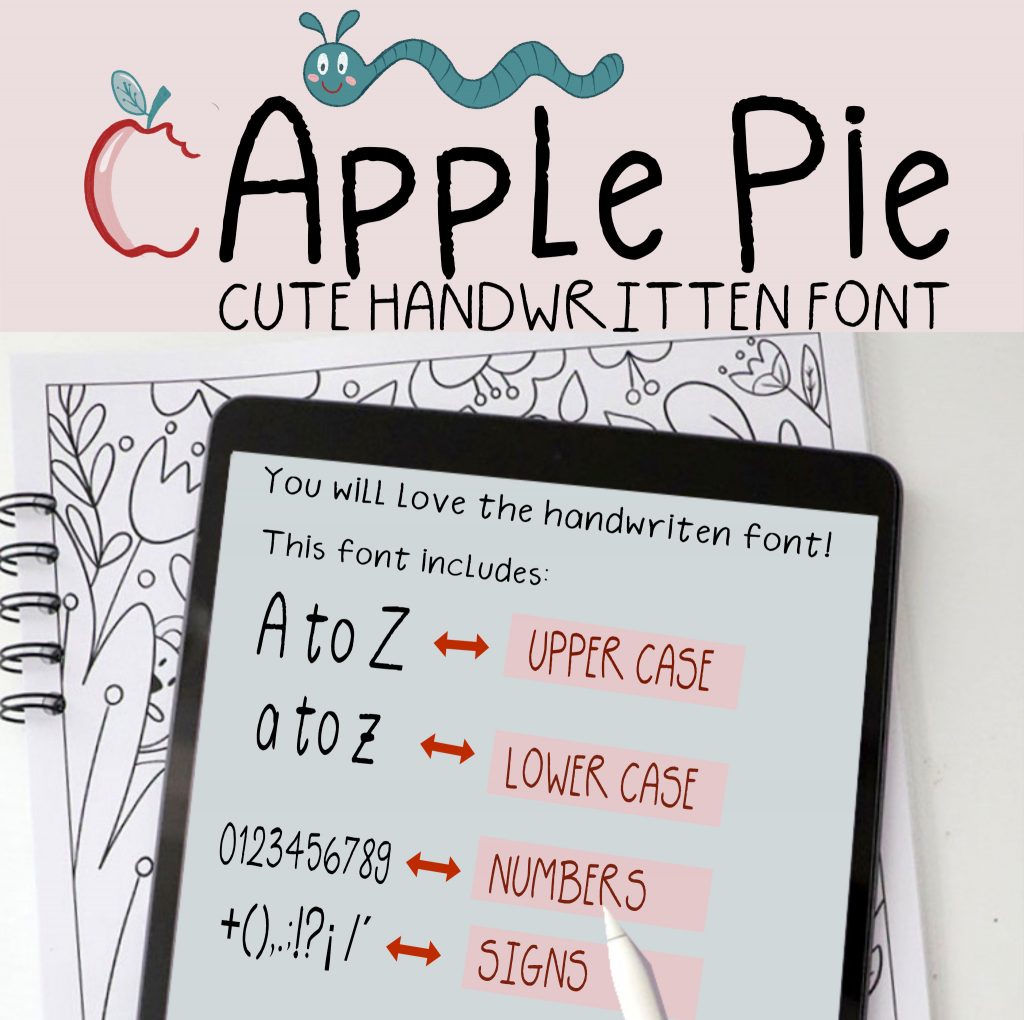 Apple Pie
CUTE HANDWRITTEN FONT
You will love the handwriten font!
This font includes:
A to Z UPPER CASE
a to z LOWER CASE
0123456789 NUMBERS
+(),.:!?¡ /´ SIGNS